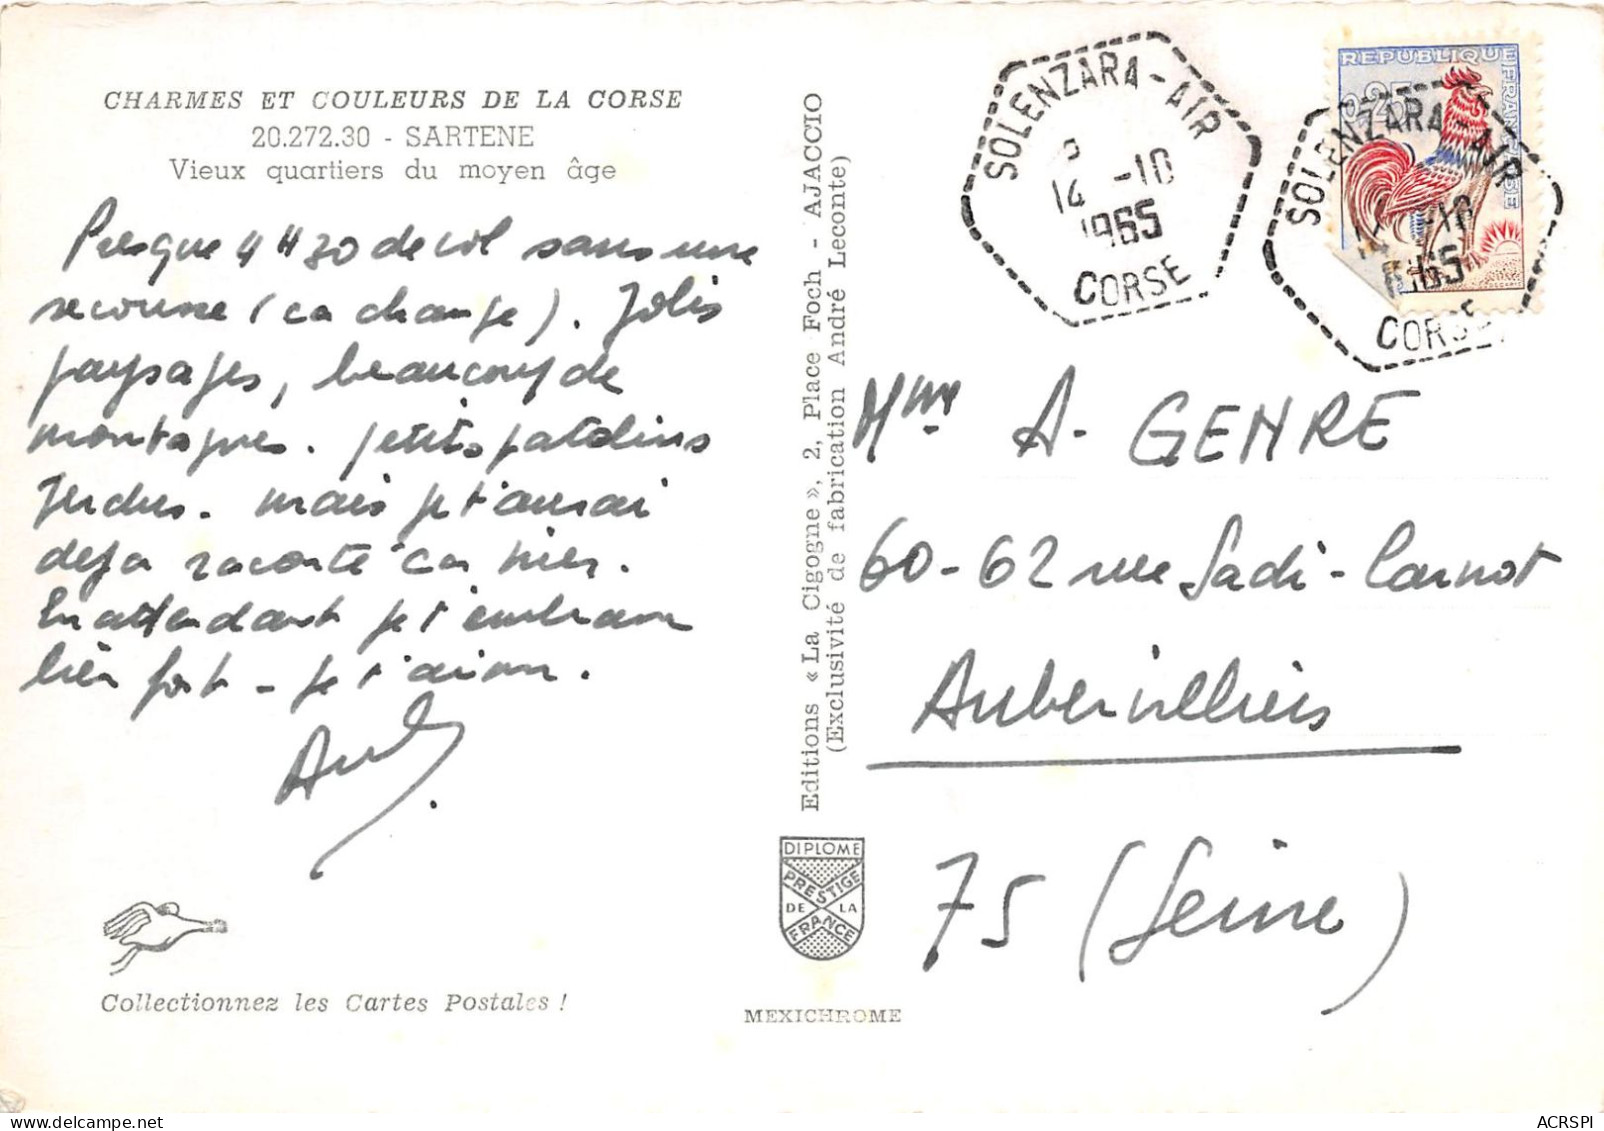 CHARMES ET COULEURS DE LA CORSE
20.272.30 - SARTENE
Vieux quartiers du moyen âge
Presque 4 H 30 de vol sans une
secousse (ca change). Jolis
paysages, beaucoup de
montagnes. petits patelins
perdus. mais je t'aurai
deja raconté ca hier.
En attendant je t'embrasse
bien fort - je t'aime.
Collectionnez les Cartes Postales !
Editions « La Cigogne », 2, Place Foch - AJACCIO
(Exclusivité de fabrication André Leconte)
DIPLOME
PRESTIGE
DE LA
FRANCE
MEXICHROME
SOLENZARA-AIR
14 -10
1965
CORSE
REPUBLIQUE FRANÇAISE
0,25
SOLENZARA-AIR
14 -10
1965
CORSE
Mme A. GENRE
60-62 rue Sadi-Carnot
Aubervilliers
75 (Seine)
ACRSPI